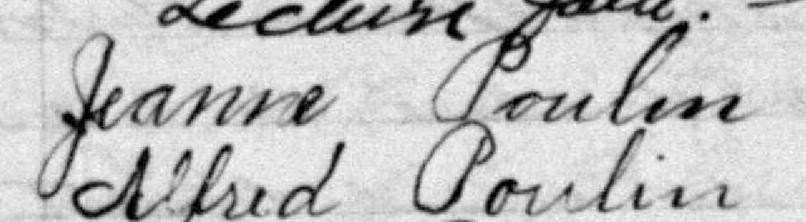 Lecture faite. –
Jeanne Poulin
Alfred Poulin